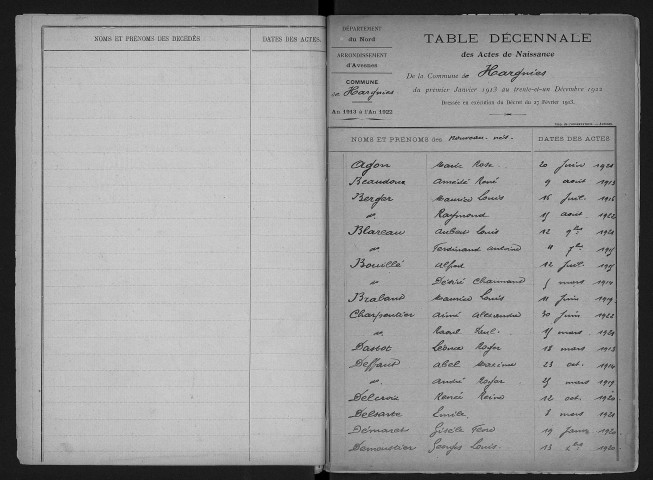 NOMS ET PRÉNOMS DES DÉCÉDÉS DATES DES ACTES.
DÉPARTEMENT
du Nord
ARRONDISSEMENT
d'Avesnes
COMMUNE
de Hargnies
An 1913 à l'An 1922
TABLE DÉCENNALE
des Actes de Naissance
De la Commune de Hargnies
du premier Janvier 1913 au trente-et-un Décembre 1922
Dressée en exécution du Décret du
NOMS ET PRÉNOMS des Nouveau-nés DATES DES ACTES
Agon Marie Rose 20 Juin 1921
Beaudoux Amédé René 9 août 1913
Berger Maurice Louis 16 Juil. 1916
d° Raymond 15 août 1922
Blareau Aubert Louis 12 9bre 1920
d° Ferdinand
Bouillé Alfred 12 Juil.
d° Désiré 5 mars 1914
Braband Maurice Louis 11 Juin 1919
Charpentier Aimé Alexandre 30 Juin 1922
d° Raoul Paul 15 mars 1921
Dassot Roger 18 mars 1913
Deffaut Abel Maxime 23 oct. 1914
d° André Roger 25 mars 1919
Delcroix Renée Reine 12 oct. 1920
Delsarte Emile 8 mars 1921
Démaret Gisèle 19 Janv. 1920
Demoustier Georges Louis 13 1920